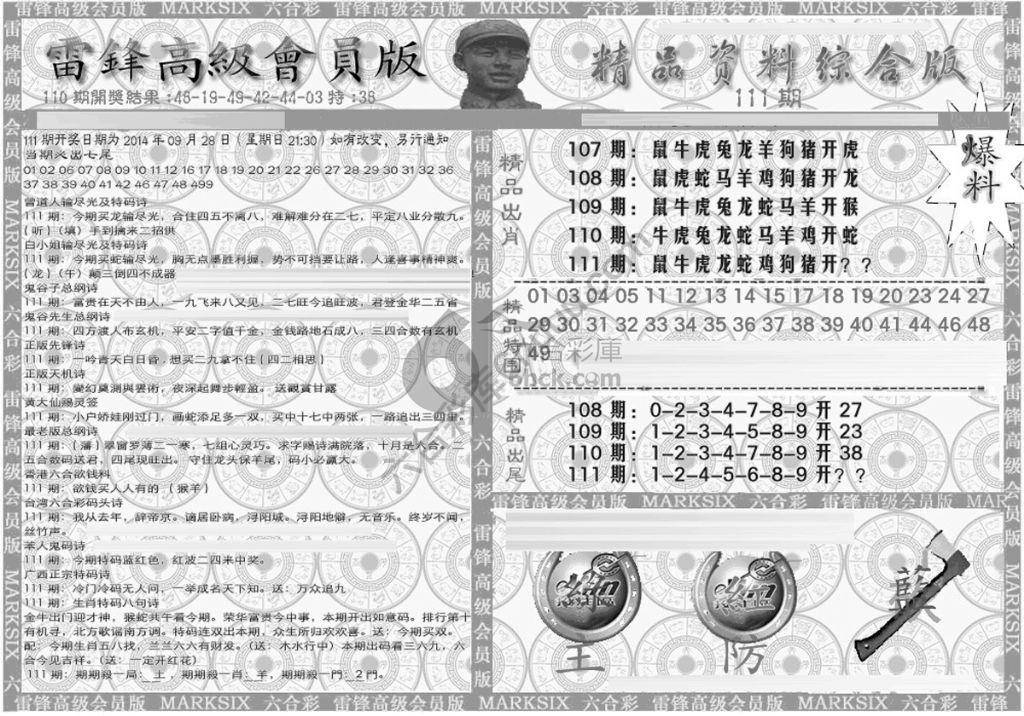 雷锋高级会员版 MARKSIX 六合彩 雷锋高级会员版 MARKSIX 六合彩 雷锋高级会员版 MARKSIX 六合彩 雷锋高级会员版
雷鋒高級會員版
精品资料综合版
110期開獎結果:46-19-49-42-44-03特:36
111期
111期开奖日期为2014年09月28日(星期日21:30)如有改变,另行通知
当期必出七尾
01 02 06 07 08 09 10 11 12 16 17 18 19 20 21 22 26 27 28 29 30 31 32 36
37 38 39 40 41 42 46 47 48 499
曾道人输尽光及特码诗
111期:今期买龙输尽光,合住四五不离八,难解难分在二七,平定八业分散九。
(听)(填)手到擒来二招供
白小姐输尽光及特码诗
111期:今期买蛇输尽光,胸无点墨胜利握,势不可挡要让路,人逢喜事精神爽。
(龙)(午)颠三倒四不成器
鬼谷子总纲诗
111期:富贵在天不由人,一九飞来八又见,三七旺今追旺波,君登金华二五省
鬼谷先生总纲诗
111期:四方渡人布玄机,平安二字值千金,金钱路地石成八,三四合数有玄机
正版先锋诗
111期:一吟青天白日皆,想买二九拿不住(四二相思)
正版天机诗
111期:變幻莫測與雲術,夜深起舞步輕盈。送觀賞甘露
黄大仙赐灵签
111期:小户娇娃刚过门,画蛇添足多一双,买中十七中两张,一路追出三四里。
最老版总纲诗
111期:(藩)翠窗罗薄二一寒,七组心灵巧。求字赐诗满院落,十月是六合。二
五合数码送君,四尾现旺出。守住龙头保羊尾,码小必赢大。
香港六合欲钱料
111期:欲钱买人人有的(猴羊)
台湾六合彩码头诗
111期:我从去年,辞帝京。谪居卧病,浔阳城。浔阳地僻,无音乐。终岁不闻,
丝竹声。
苯人鬼码诗
111期:今期特码蓝红色,红波二四来中奖。
广西正宗特码诗
111期:冷门冷码无人问,一举成名天下知。送:万众追九
111期:生肖特码八句诗
金牛出门迎才神,猴蛇共午看今期。荣华富贵今中事,本期开出如意码。排行第十
有机寻,北方歌谣南方调。特码连双出本期,众生所归欢欢喜。送:今期买双。
配:今期生肖五八找,兰兰六六有财发。(送:木水行中)本期出码看三六九,六
合今见吉祥。(送:一定开红花)
111期:期期殺一局:土,期期殺一肖:羊,期期殺一門:2門。
精品出肖
107期:鼠牛虎兔龙羊狗猪开虎
108期:鼠虎蛇马羊鸡狗猪开龙
109期:鼠牛虎兔龙蛇马羊开猴
110期:牛虎兔龙蛇马羊鸡开蛇
111期:鼠牛虎龙蛇鸡狗猪开??
爆料
精品特围
01 03 04 05 11 12 13 14 15 17 18 19 20 23 24 27
29 30 31 32 33 34 35 36 37 38 39 40 41 44 46 48
49
六合彩庫
6hck.com
精品出尾
108期:0-2-3-4-7-8-9开27
109期:1-2-3-4-5-8-9开23
110期:1-2-3-4-7-8-9开38
111期:1-2-4-5-6-8-9开??
雷锋高级会员版 MARKSIX 六合彩 雷锋高级会员版 MARK
主
防
藍
雷锋高级会员版 MARKSIX 六合彩 雷锋高级会员版 MARKSIX 六合彩 雷锋高级会员版 MARKSIX 六合彩 雷锋高级会员版